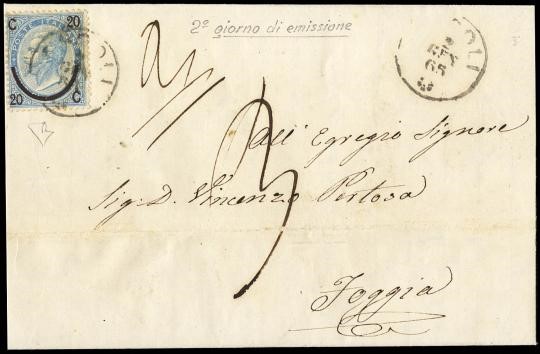 2º giorno di emissione
C 20
POSTE ITALIANE
20 C
OLI
OLI
All' Egregio Signore
Sig: D. Vincenzo Pertosa
Foggia